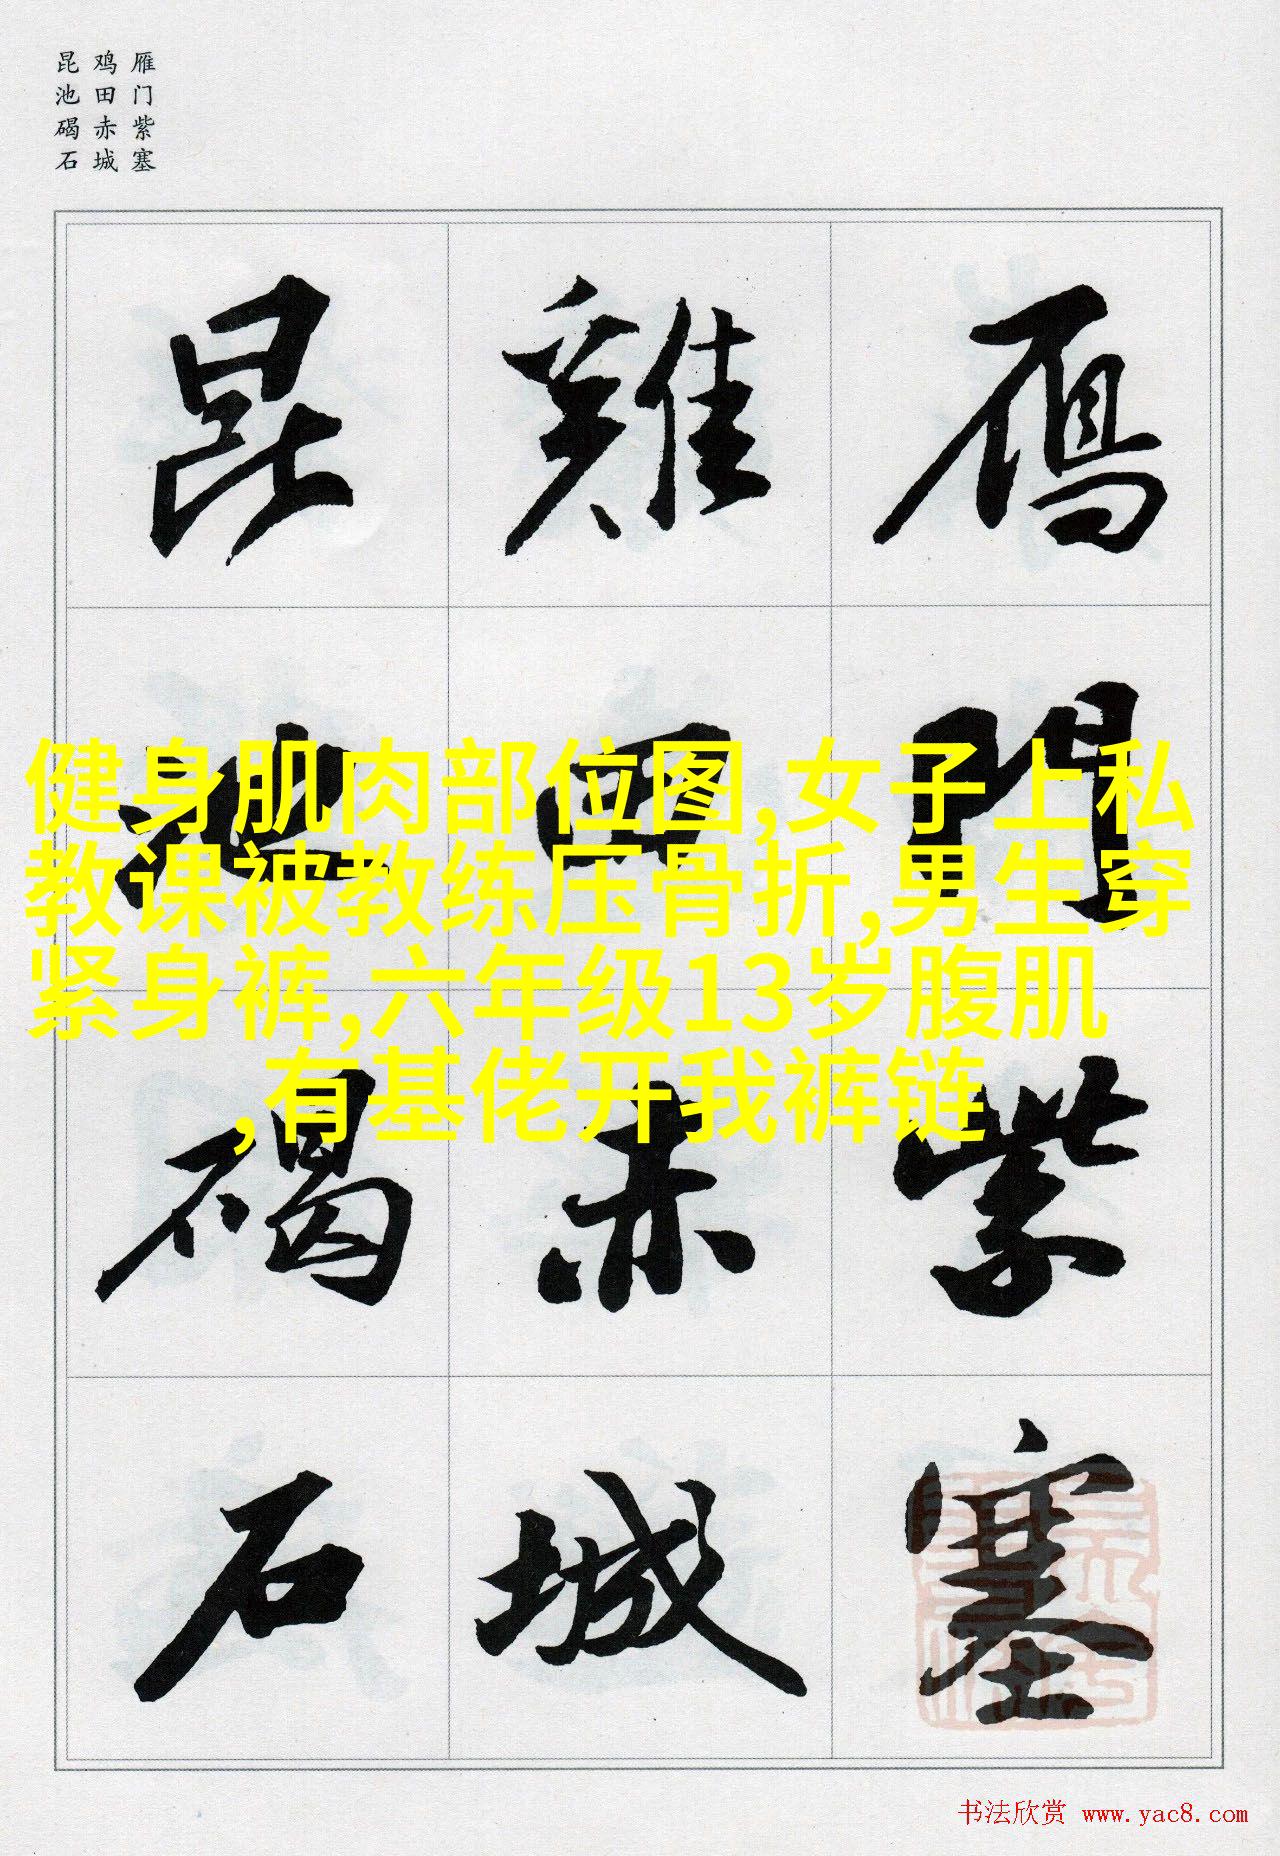 雁门紫塞
鸡田赤城
昆池碣石
雁門紫塞
雞田赤城
昆池碣石
健身肌肉部位图,女子上私
教课被教练压骨折,男生穿
紧身裤,六年级13岁腹肌
,有基佬开我裤链
书法欣赏 www.yac8.com